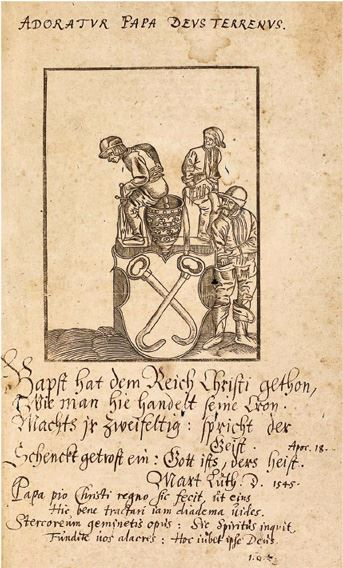 ADORATVR PAPA DEVS TERRENVS.
Bapst hat dem Reich Christi gethon,
Wie man hie handelt seine Cron.
Machts jr zweifeltig: spricht der
Geist. Apoc. 18.
Schenckt getrost ein: Gott ists, ders heist.
Mart Luth. D. 1545.
Papa pio Christi regno sic fecit, ut eius
Hic bene tractari iam diadema uides.
Stercoreum geminetis opus: Sic Spiritus inquit
Fundite uos alacres: Hoc iubet ipse Deus.